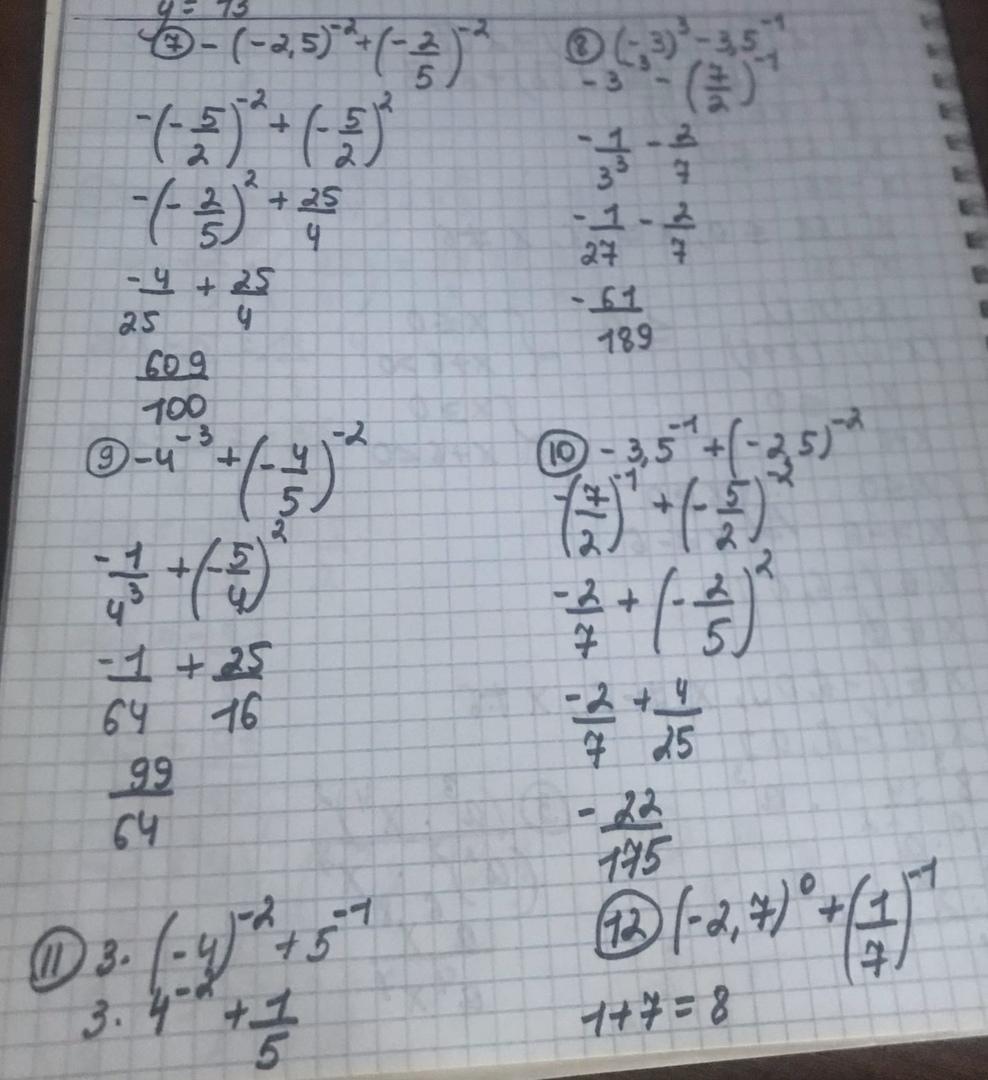 y = 13
⑦ -(-2,5)^{-2} + (-2/5)^{-2}
-(-5/2)^{-2} + (-5/2)^2
-(-2/5)^2 + 25/4
-4/25 + 25/4
609/100
⑧ (-3)^3 - 3,5^{-1}
-3^{-3} - (7/2)^{-1}
-1/3^3 - 2/7
-1/27 - 2/7
-61/189
⑨ -4^{-3} + (-4/5)^{-2}
-1/4^3 + (-5/4)^2
-1/64 + 25/16
99/64
⑩ -3,5^{-1} + (-2,5)^{-2}
-(7/2)^{-1} + (-5/2)^{-2}
-2/7 + (-2/5)^2
-2/7 + 4/25
-22/175
⑪ 3·(-4)^{-2} + 5^{-1}
3·4^{-2} + 1/5
⑫ (-2,7)^0 + (1/7)^{-1}
1+7=8